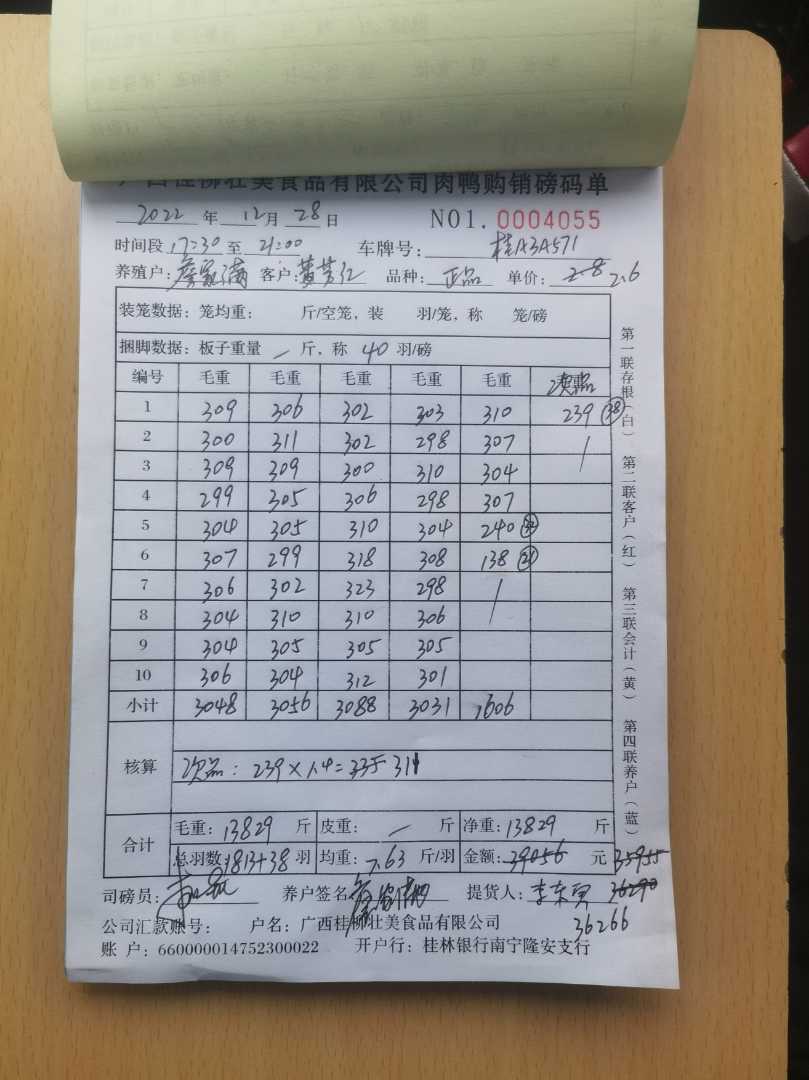 广西桂柳壮美食品有限公司肉鸭购销磅码单
2022 年 12 月 28 日 NO1. 0004055
时间段 17:30 至 21:00 车牌号: 桂A3A571
养殖户: 家满 客户: 黄芳红 品种: 正品 单价: 2.8 2.6
装笼数据: 笼均重: 斤/空笼, 装 羽/笼, 称 笼/磅
捆脚数据: 板子重量 / 斤, 称 40 羽/磅
编号 毛重 毛重 毛重 毛重 毛重 次品
1 309 306 302 303 310 239 (38)
2 300 311 302 298 307 /
3 309 309 300 310 304
4 299 305 306 298 307
5 304 305 310 304 240
6 307 299 318 308 138 (21)
7 306 302 323 298 /
8 304 310 310 306
9 304 305 305 305
10 306 304 312 301
小计 3048 3056 3088 3031 1606
核算 次品: 239×1.4=335 311
合计 毛重: 13829 斤 皮重: / 斤 净重: 13829 斤
总羽数: 1813+38 羽 均重: 7.63 斤/羽 金额: 39056 元 35955
司磅员: 养户签名: 提货人: 36290
36266
公司汇款账号: 户名: 广西桂柳壮美食品有限公司
账 户: 660000014752300022 开户行: 桂林银行南宁隆安支行
第一联存根(白) 第二联客户(红) 第三联会计(黄) 第四联养户(蓝)